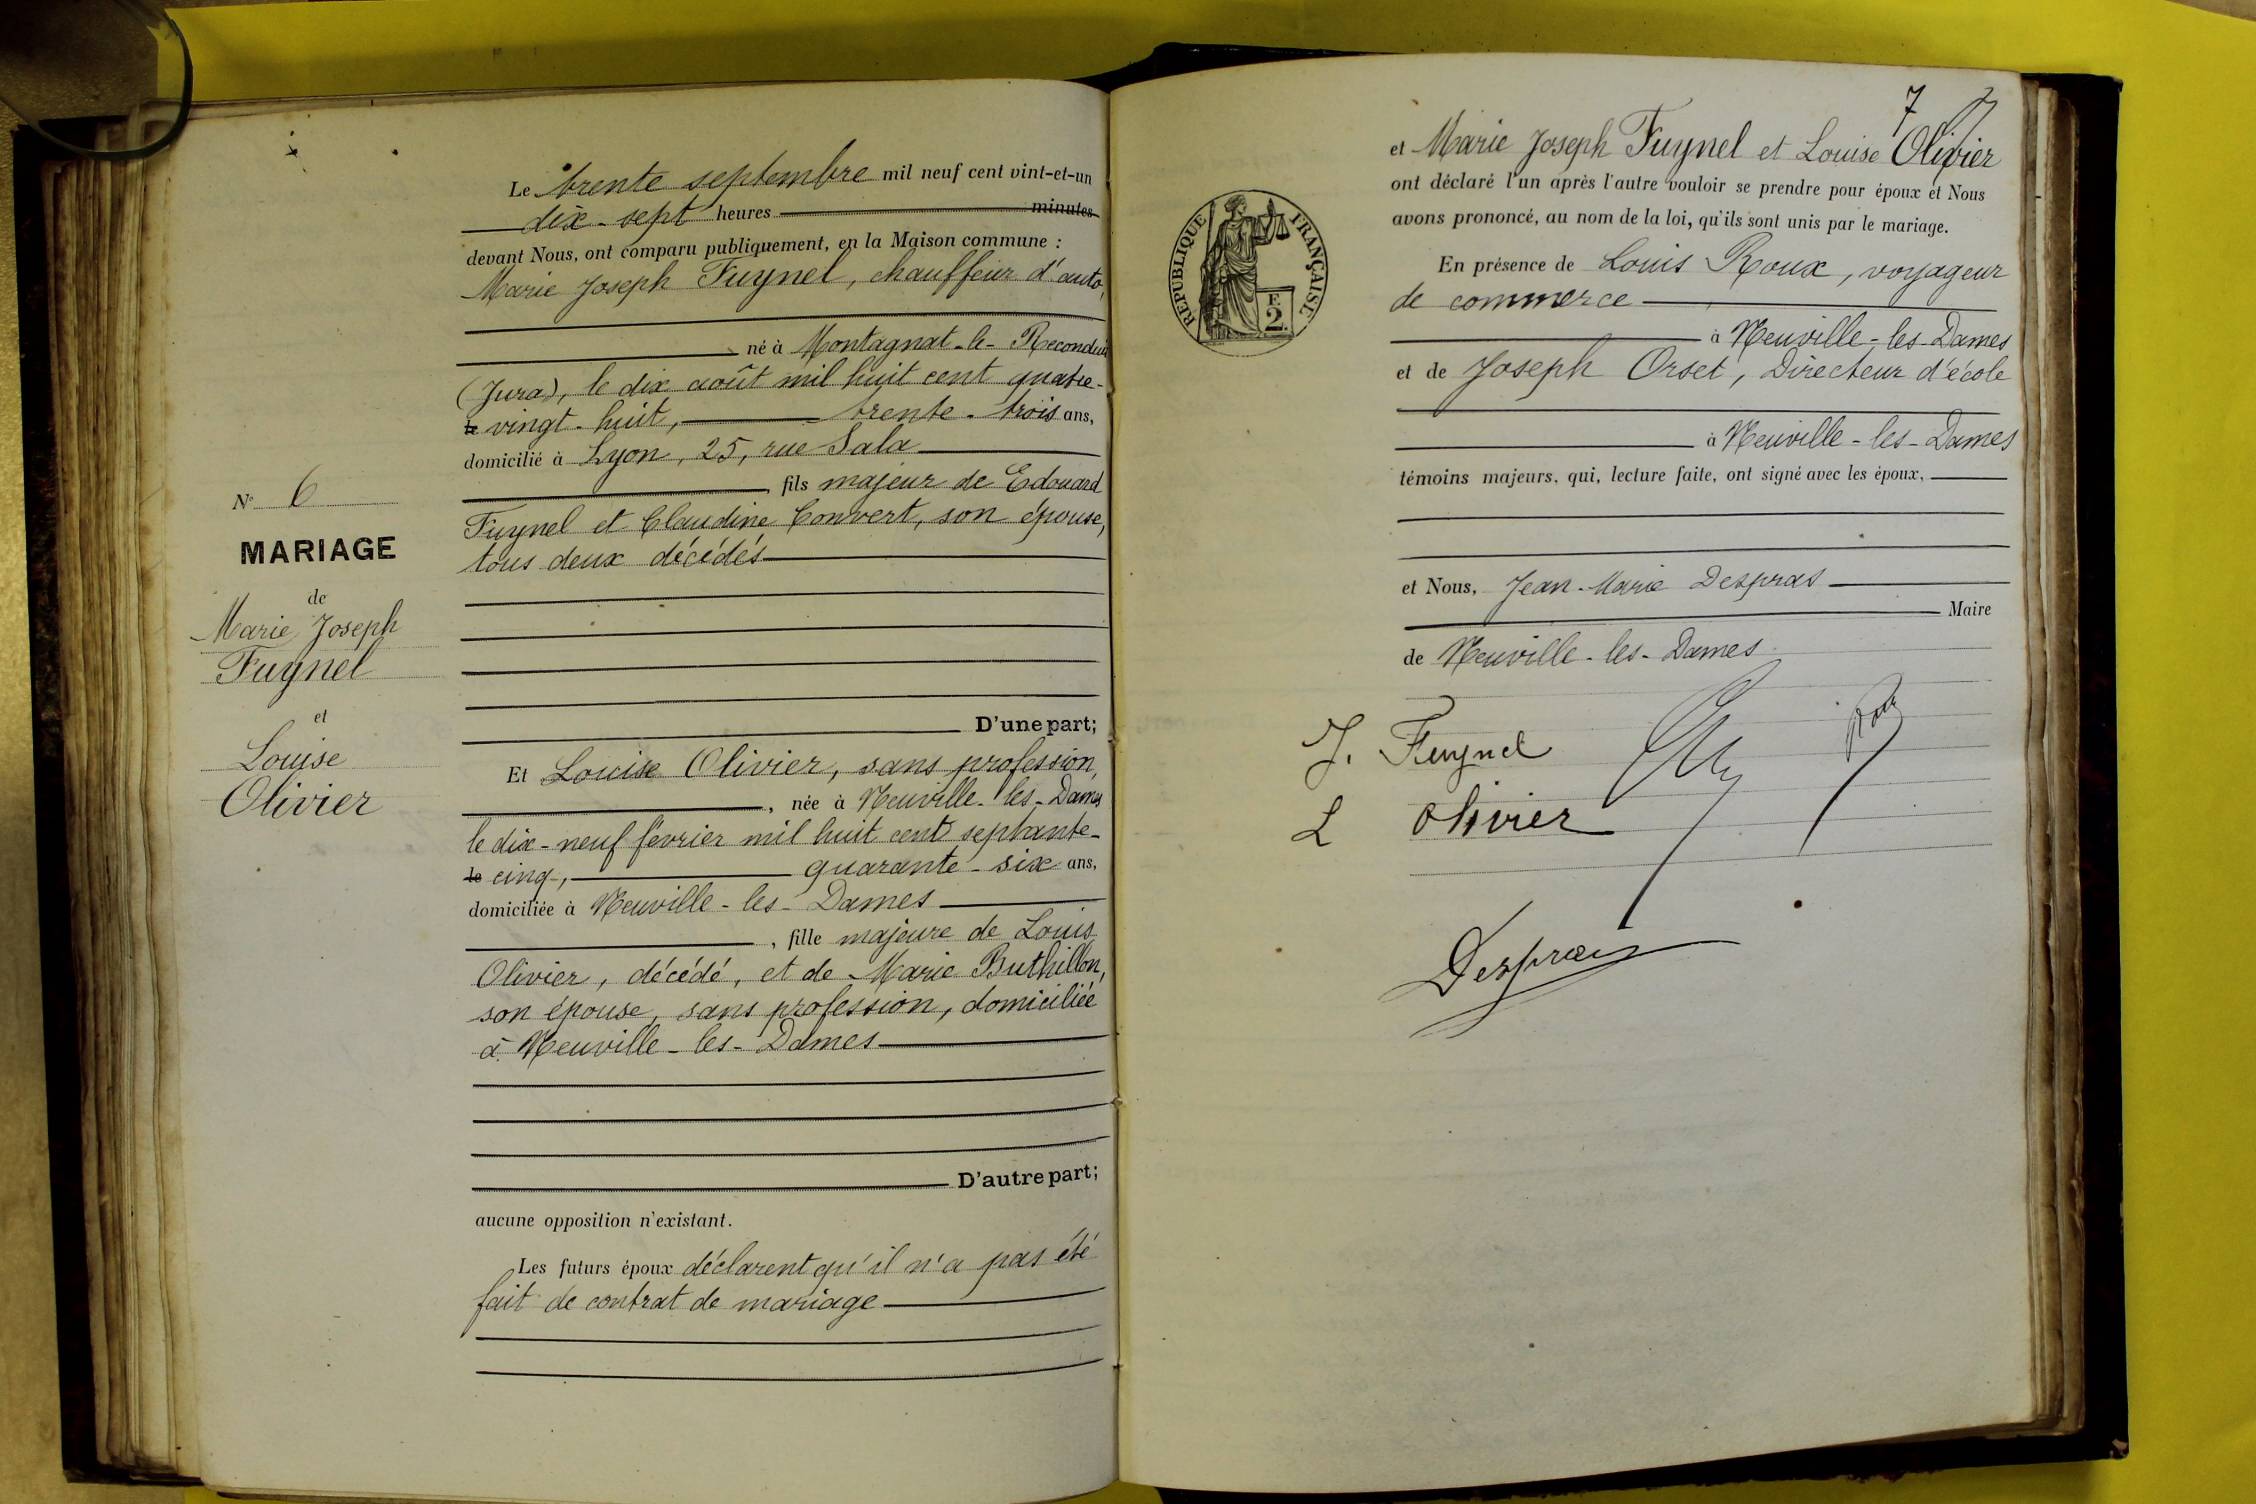 Le trente septembre mil neuf cent vint-et-un
dix-sept heures minutes
devant Nous, ont comparu publiquement, en la Maison commune :
Marie Joseph Fuynel, chauffeur d'auto,
né à Montagnat-le-Reconduit
(Jura), le dix août mil huit cent quatre-
le vingt-huit, trente-trois ans,
domicilié à Lyon, 25, rue Sala
fils majeur de Edouard
Fuynel et Claudine Convert, son épouse,
tous deux décédés
N° 6
MARIAGE
de
Marie Joseph
Fuynel
et
Louise
Olivier
D'une part;
Et Louise Olivier, sans profession,
, née à Neuville-les-Dames
le dix-neuf février mil huit cent septante-
le cinq, quarante-six ans,
domiciliée à Neuville-les-Dames
, fille majeure de Louis
Olivier, décédé, et de Marie Buthillon,
son épouse, sans profession, domiciliée
à Neuville-les-Dames
D'autre part;
aucune opposition n'existant.
Les futurs époux déclarent qu'il n'a pas été
fait de contrat de mariage
7
et Marie Joseph Fuynel et Louise Olivier
ont déclaré l'un après l'autre vouloir se prendre pour époux et Nous
avons prononcé, au nom de la loi, qu'ils sont unis par le mariage.
RÉPUBLIQUE FRANÇAISE
F.
2.
En présence de Louis Roux, voyageur
de commerce
à Neuville-les-Dames
et de Joseph Orset, Directeur d'école
à Neuville-les-Dames
témoins majeurs, qui, lecture faite, ont signé avec les époux,
et Nous, Jean-Marie Despras
Maire
de Neuville-les-Dames
J. Fuynel
L Olivier
Despras